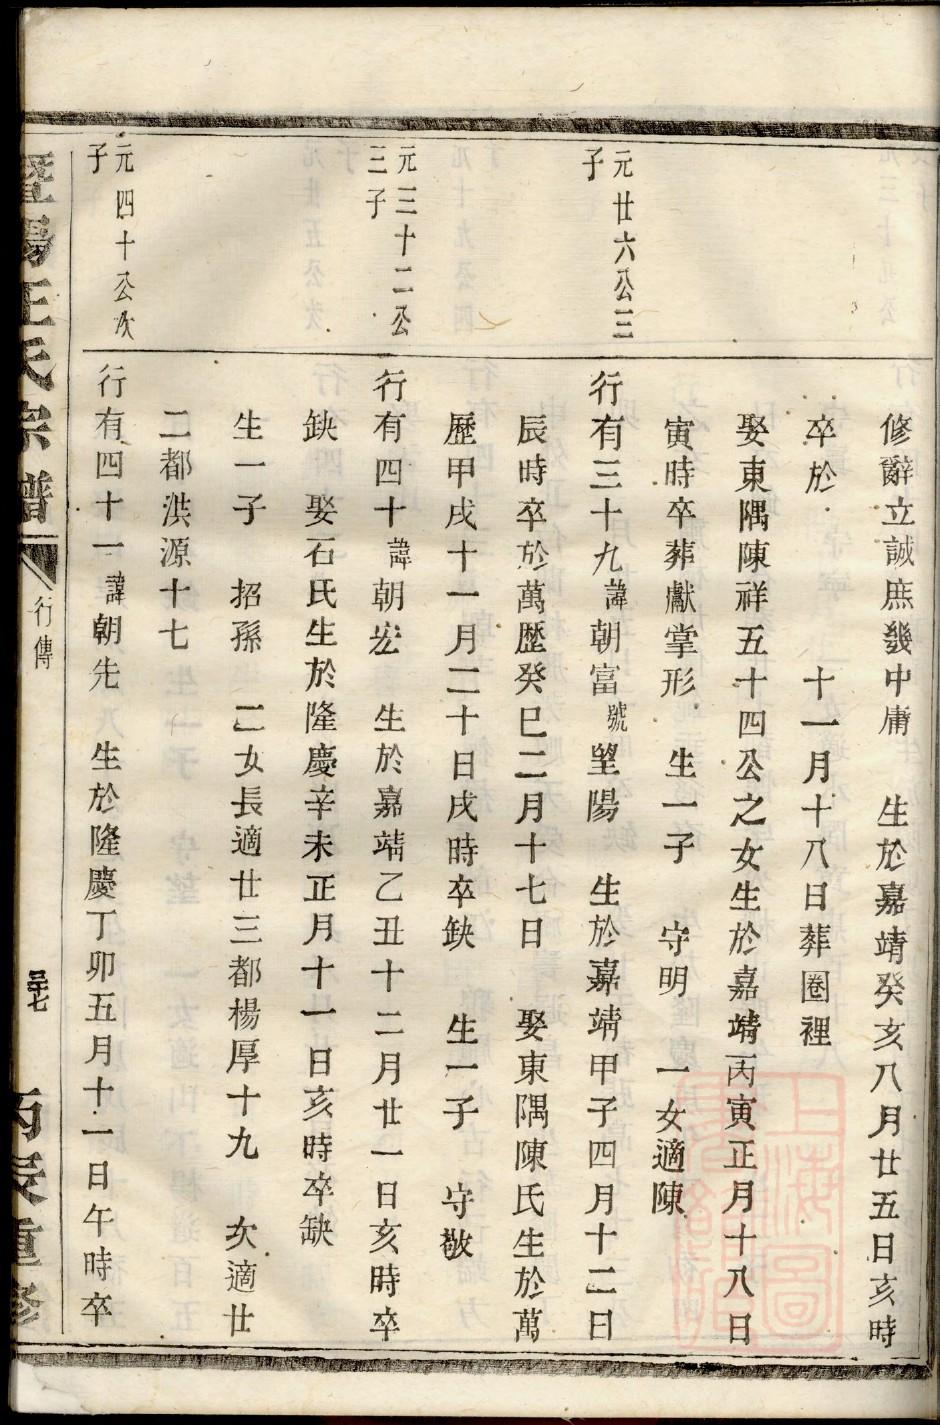 修辭立誠庶幾中庸 生於嘉靖癸亥八月廿五日亥時
卒於 十一月十八日葬圈裡
娶東隅陳祥五十四公之女生於嘉靖丙寅正月十八日
寅時卒葬獻掌形 生一子 守明 一女適陳
元廿六公三
子
行有三十九諱朝富號望陽 生於嘉靖甲子四月十二日
辰時卒於萬歷癸巳二月十七日 娶東隅陳氏生於萬
歷甲戌十一月二十日戌時卒缺 生一子 守敬
元三十二公
三子
行有四十諱朝宏 生於嘉靖乙丑十二月廿一日亥時卒
缺 娶石氏生於隆慶辛未正月十一日亥時卒缺
生一子 招孫 二女長適廿三都楊厚十九 次適廿
二都洪源十七
元四十公次
子
行有四十一諱朝先 生於隆慶丁卯五月十一日午時卒
暨陽王氏宗譜
行傳
丙辰重修
上海圖書館藏